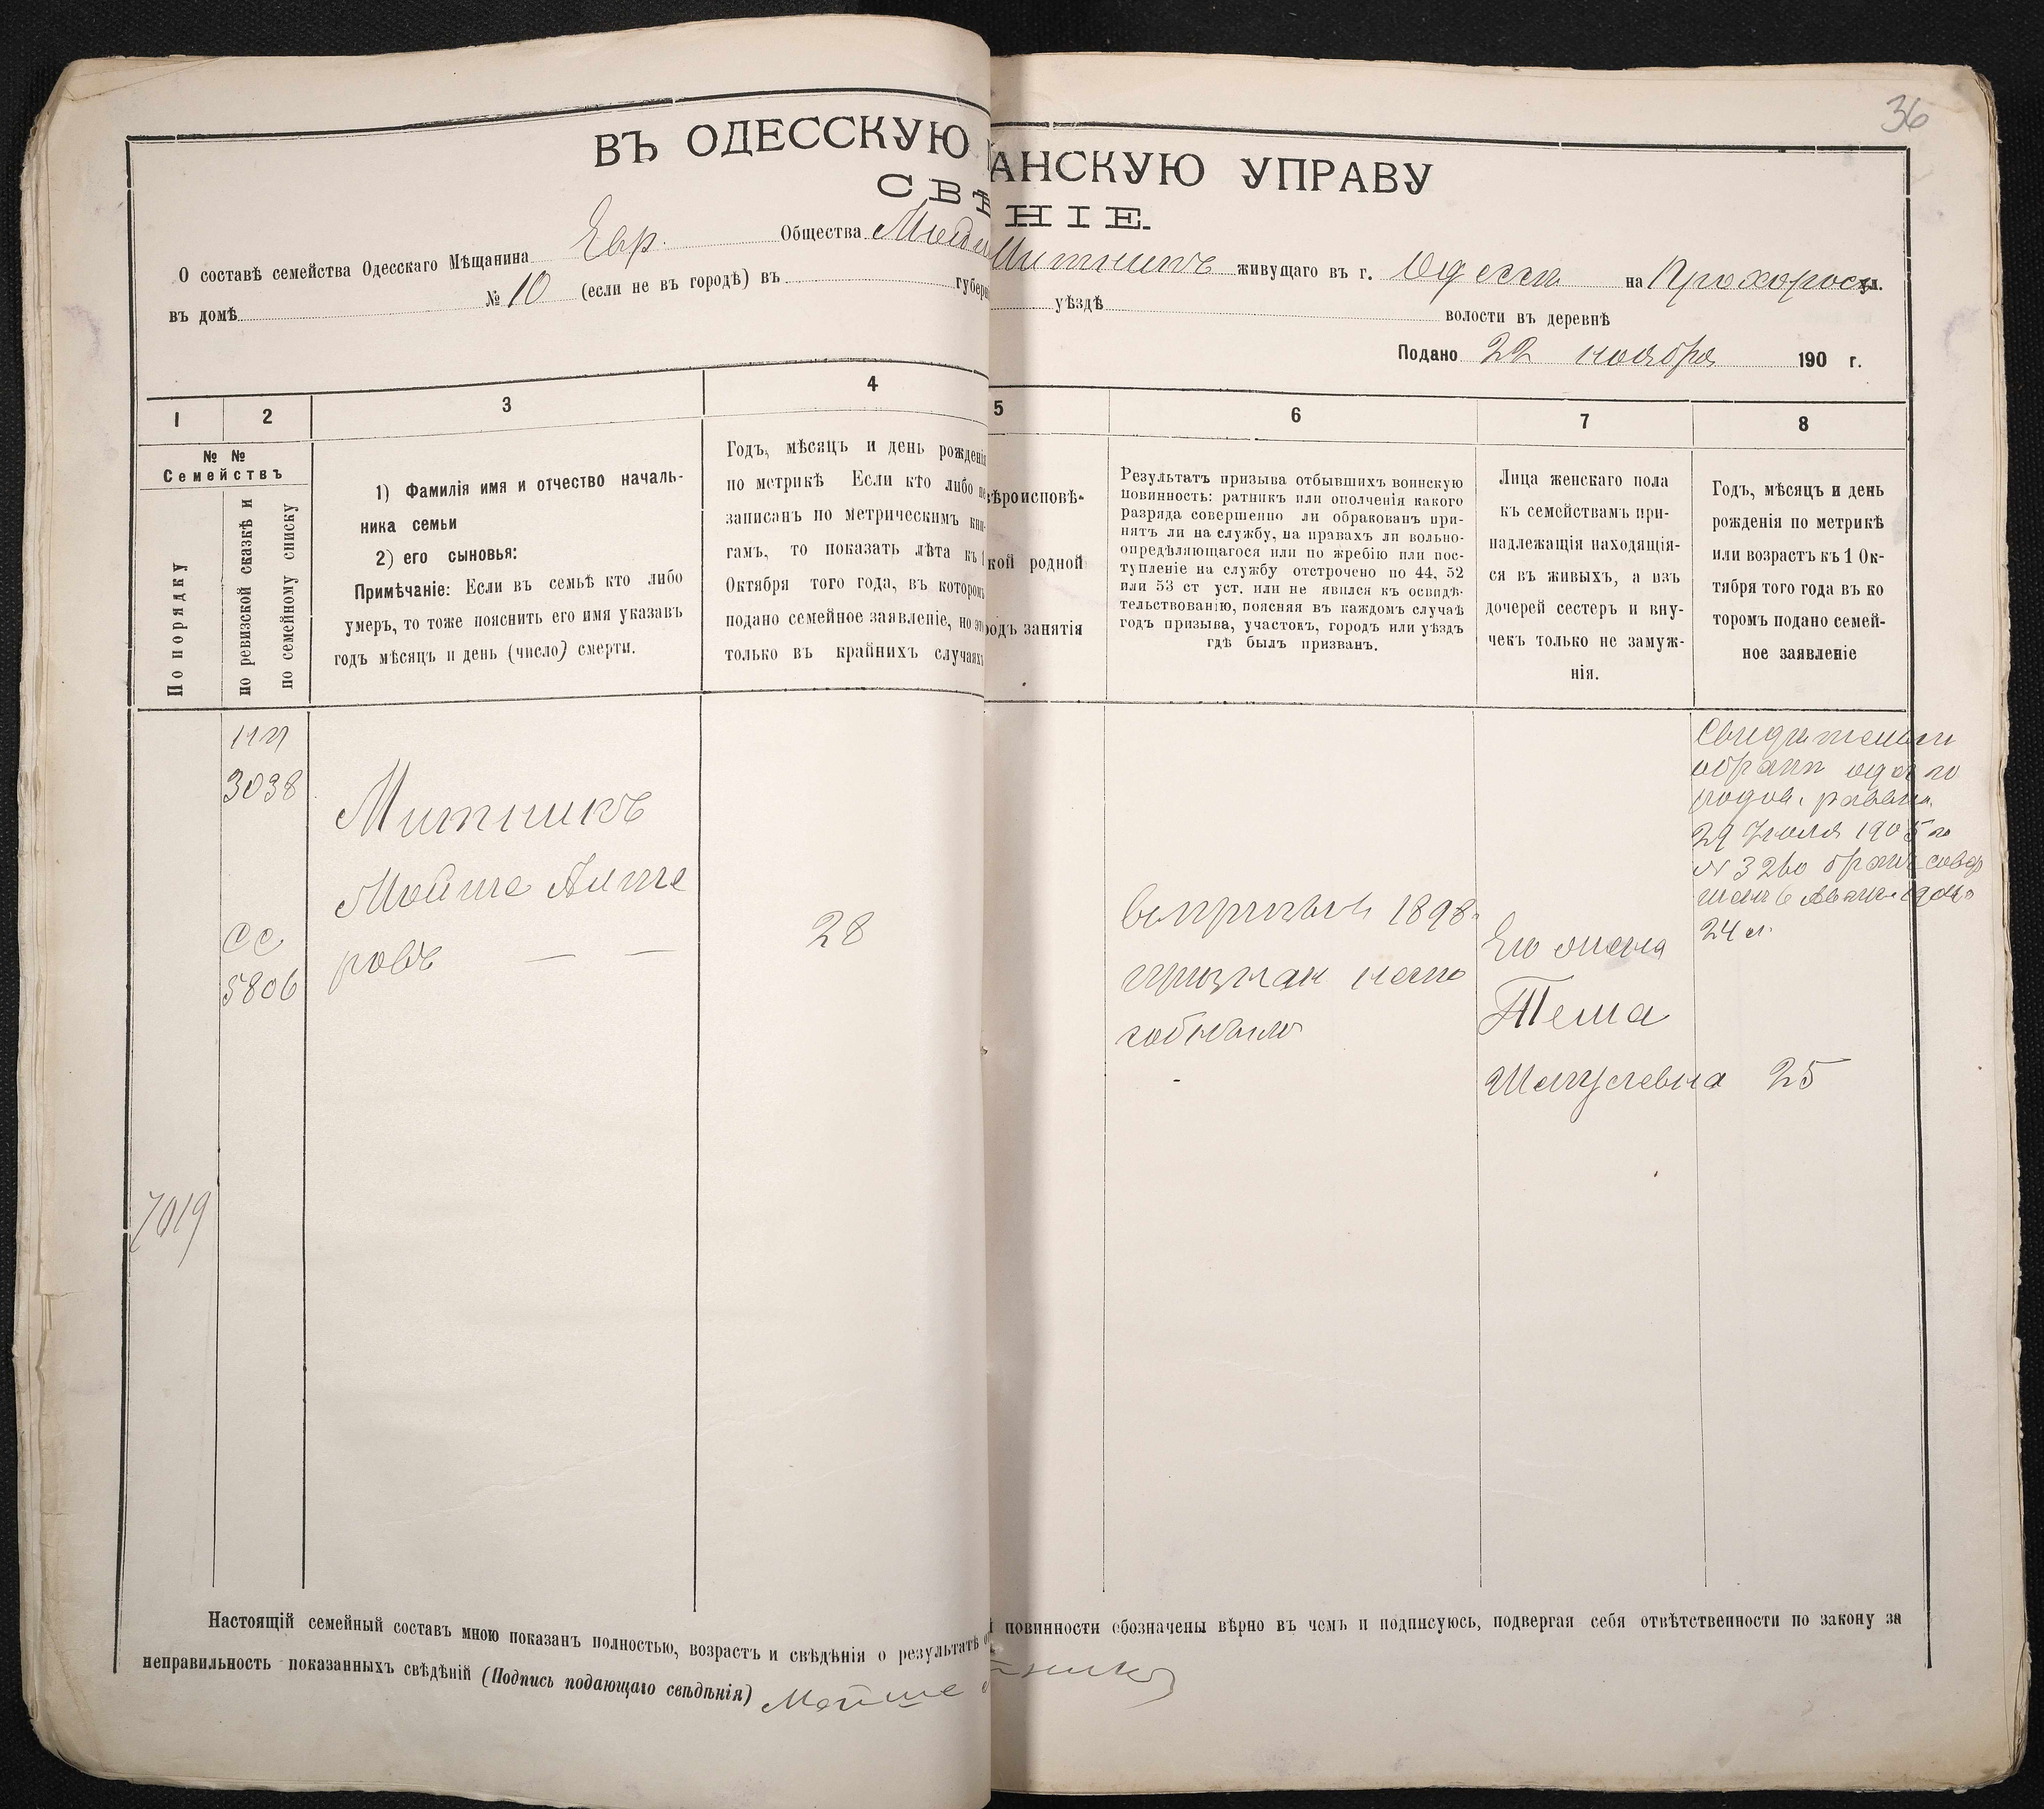 36
ВЪ ОДЕССКУЮ АНСКУЮ УПРАВУ
СВѢ НІЕ.
О составѣ семейства Одесскаго Мѣщанина Евр. Общества Мойш Митникъ живущаго въ г. Одессѣ на Прохоровск ул.
въ домѣ № 10 (если не въ городѣ) въ губерн уѣздѣ волости въ деревнѣ
Подано 22 ноября 190 г.
1 2 3 4 5 6 7 8
№ №
Семействъ
По порядку
по ревизской сказкѣ и
по семейному списку
1) Фамилія имя и отчество началь-
ника семьи
2) его сыновья:
Примѣчаніе: Если въ семьѣ кто либо
умеръ, то тоже пояснить его имя указавъ
годъ мѣсяцъ и день (число) смерти.
Годъ, мѣсяцъ и день рожденія
по метрикѣ Если кто либо не
записанъ по метрическимъ кни-
гамъ, то показать лѣта къ 1
Октября того года, въ которомъ
подано семейное заявленіе, но это
только въ крайнихъ случаяхъ
ѣроисповѣ-
кой родной
родъ занятія
Результатъ призыва отбывшихъ воинскую
повинность: ратникъ или ополченія какого
разряда совершенно ли обракованъ при-
нятъ ли на службу, на правахъ ли вольно-
опредѣляющагося или по жребію или пос-
тупленіе на службу отстрочено по 44, 52
или 53 ст уст. или не явился къ освидѣ-
тельствованію, поясняя въ каждомъ случаѣ
годъ призыва, участокъ, городъ или уѣздъ
гдѣ былъ призванъ.
Лица женскаго пола
къ семействамъ при-
надлежащія находящія-
ся въ живыхъ, а изъ
дочерей сестеръ и вну-
чекъ только не замуж-
нія.
Годъ, мѣсяцъ и день
рожденія по метрикѣ
или возрастъ къ 1 Ок-
тября того года въ ко
торомъ подано семей-
ное заявленіе
3038
СС
5806
7019
Митникъ
Мойше Алте
ровъ — —
28
1898
признан него
Его жена
Тема
Шмулевна 25
29 Іюля 1905 го
№ 3260
24 л.
Настоящій семейный составъ мною показанъ полностью, возрастъ и свѣдѣнія о результатѣ повинности обозначены вѣрно въ чемъ и подписуюсь, подвергая себя отвѣтственности по закону за
неправильность показанныхъ свѣдѣній (Подпись подающаго свѣдѣнія) Мойше